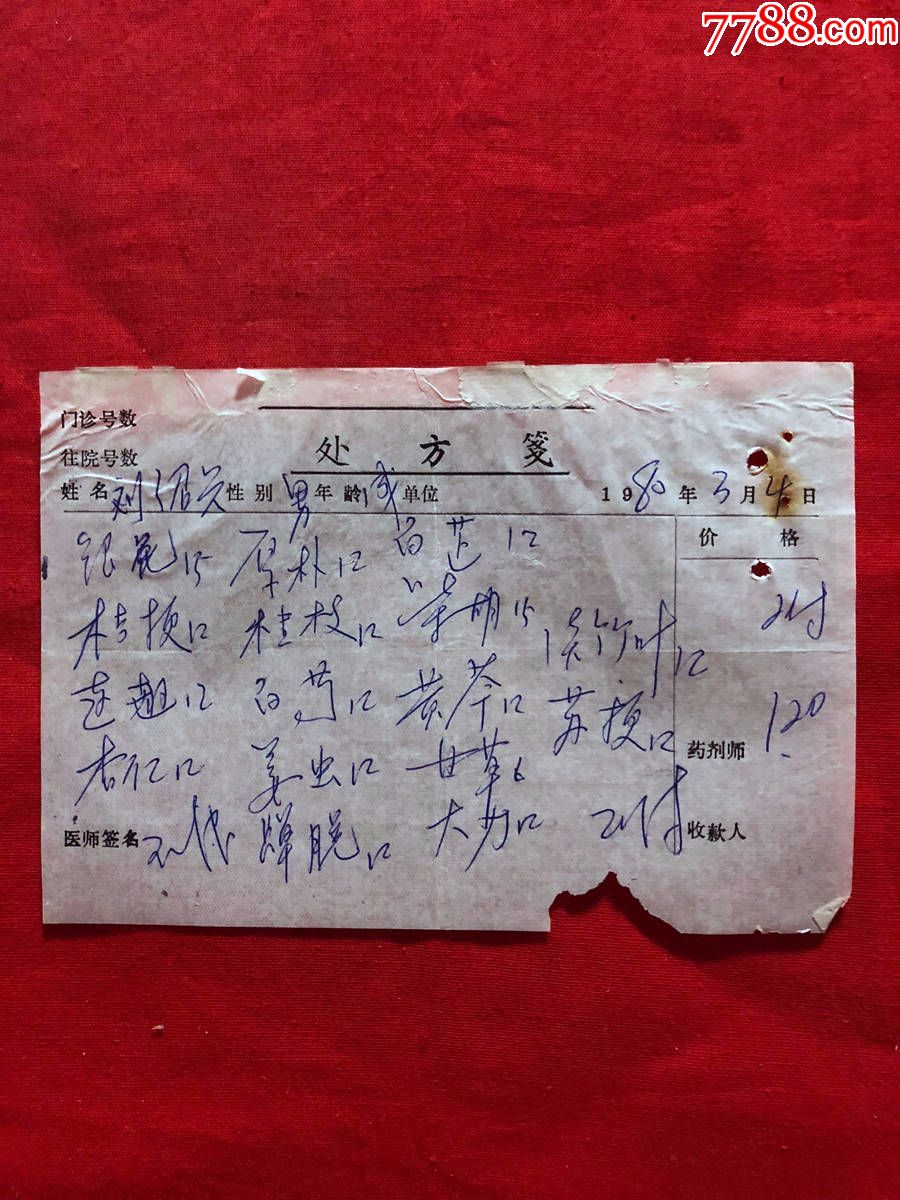 7788.com
门诊号数
往院号数
处方笺
姓名 刘 性别 男 年龄 成 单位 1980年3月4日
银花15 厚朴12 白芷12 价格
桔梗12 桂枝12 柴胡15 淡竹叶12 2付
连翘12 白芍12 黄芩12 苏梗12 药剂师 120
杏仁12 姜虫12 甘草6
医师签名 蝉脱12 大力12 2付 收款人